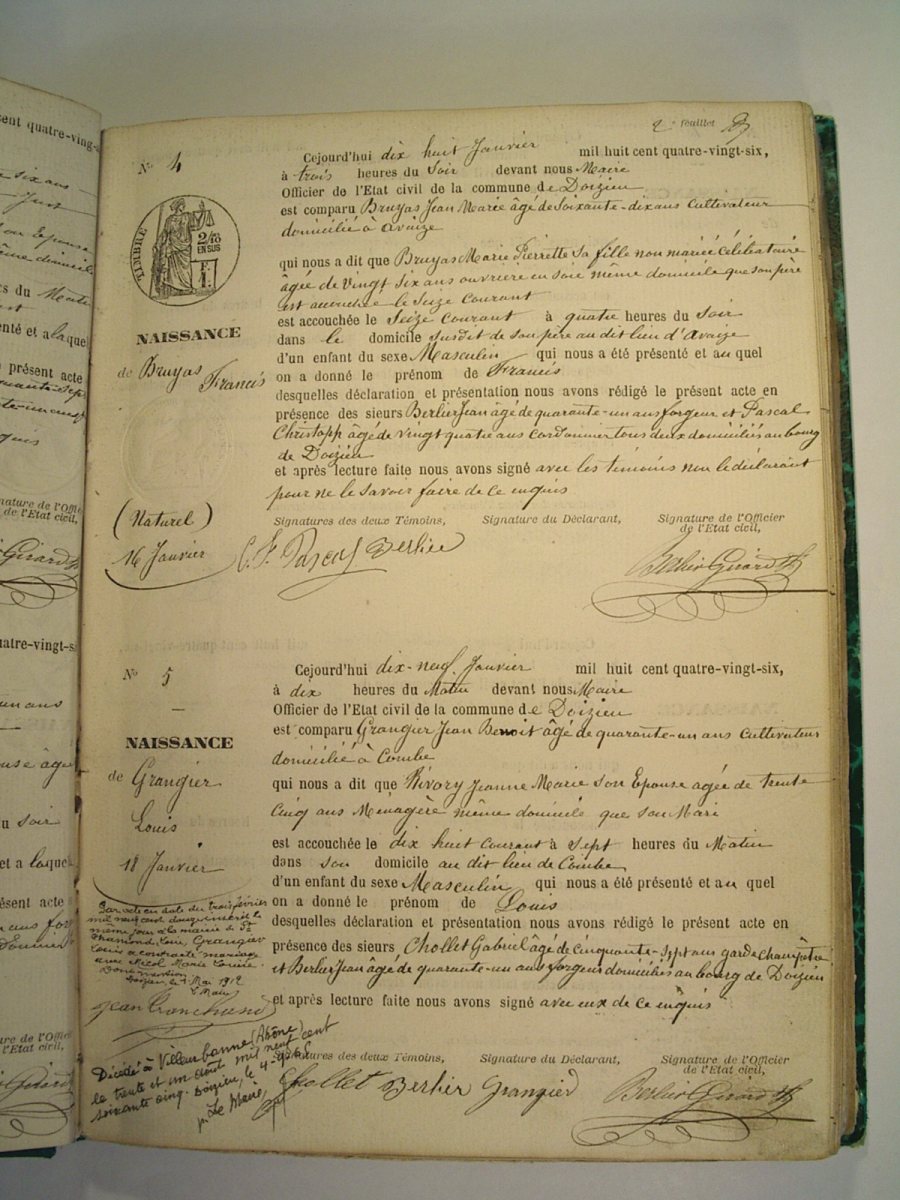 2e feuillet
No 4
TIMBRE
2/10
EN SUS
NAISSANCE
de Bruyas
Francis
(Naturel)
16 Janvier
Cejourd'hui dix huit Janvier mil huit cent quatre-vingt-six,
à trois heures du Soir devant nous Maire
Officier de l'Etat civil de la commune de Doizieu
est comparu Bruyas Jean Marie âgé de Soixante-dix ans Cultivateur
domicilié à Avaize
qui nous a dit que Bruyas Marie Pierrette sa fille non mariée Célébataire
âgée de Vingt six ans ouvrière en soie même domicile que son père
est accouchée le Seize Courant
est accouchée le Seize Courant à quatre heures du Soir
dans le domicile susdit de son père au dit lieu d'Avaize
d'un enfant du sexe Masculin qui nous a été présenté et au quel
on a donné le prénom de Francis
desquelles déclaration et présentation nous avons rédigé le présent acte en
présence des sieurs Berlier Jean âgé de quarante-un ans forgeur et Pascal
Christoph âgé de Vingt quatre ans Cordonnier tous deux domiciliés au bourg
de Doizieu
et après lecture faite nous avons signé avec les témoins non le déclarant
pour ne le savoir faire de ce enquis
Signatures des deux Témoins, Signature du Déclarant, Signature de l'Officier
de l'Etat civil,
Pascal Berlier Berlier Girard
No 5
NAISSANCE
de Grangier
Louis
18 Janvier
Cejourd'hui dix-neuf Janvier mil huit cent quatre-vingt-six,
à dix heures du Matin devant nous Maire
Officier de l'Etat civil de la commune de Doizieu
est comparu Grangier Jean Benoit âgé de quarante-un ans Cultivateur
domicilié à Combe
qui nous a dit que Rivory Jeanne Marie son Epouse agée de trente
Cinq ans Ménagère même domicile que son Mari
est accouchée le dix huit Courant à Sept heures du Matin
dans son domicile au dit lieu de Combe
d'un enfant du sexe Masculin qui nous a été présenté et au quel
on a donné le prénom de Louis
desquelles déclaration et présentation nous avons rédigé le présent acte en
présence des sieurs Chollet Gabriel âgé de Cinquante-Sept ans garde champêtre
et Berlier Jean âgé de quarante-un ans forgeur domiciliés au bourg de Doizieu
et après lecture faite nous avons signé avec eux de ce enquis
Par acte en date du trois février
mil neuf cent douze inscrit le
même jour à la mairie de St
Chamond, Loire, Grangier
Louis a contracté mariage
avec Marie Louise
Dont mention
Doizieu, le Mai 1912
Le Maire
Décédé à Villeurbanne (Rhône)
le trente et un août mil neuf cent
soixante cinq. Doizieu, le
Le Maire
Signatures des deux Témoins, Signature du Déclarant, Signature de l'Officier
de l'Etat civil,
Chollet Berlier Grangier Berlier Girard